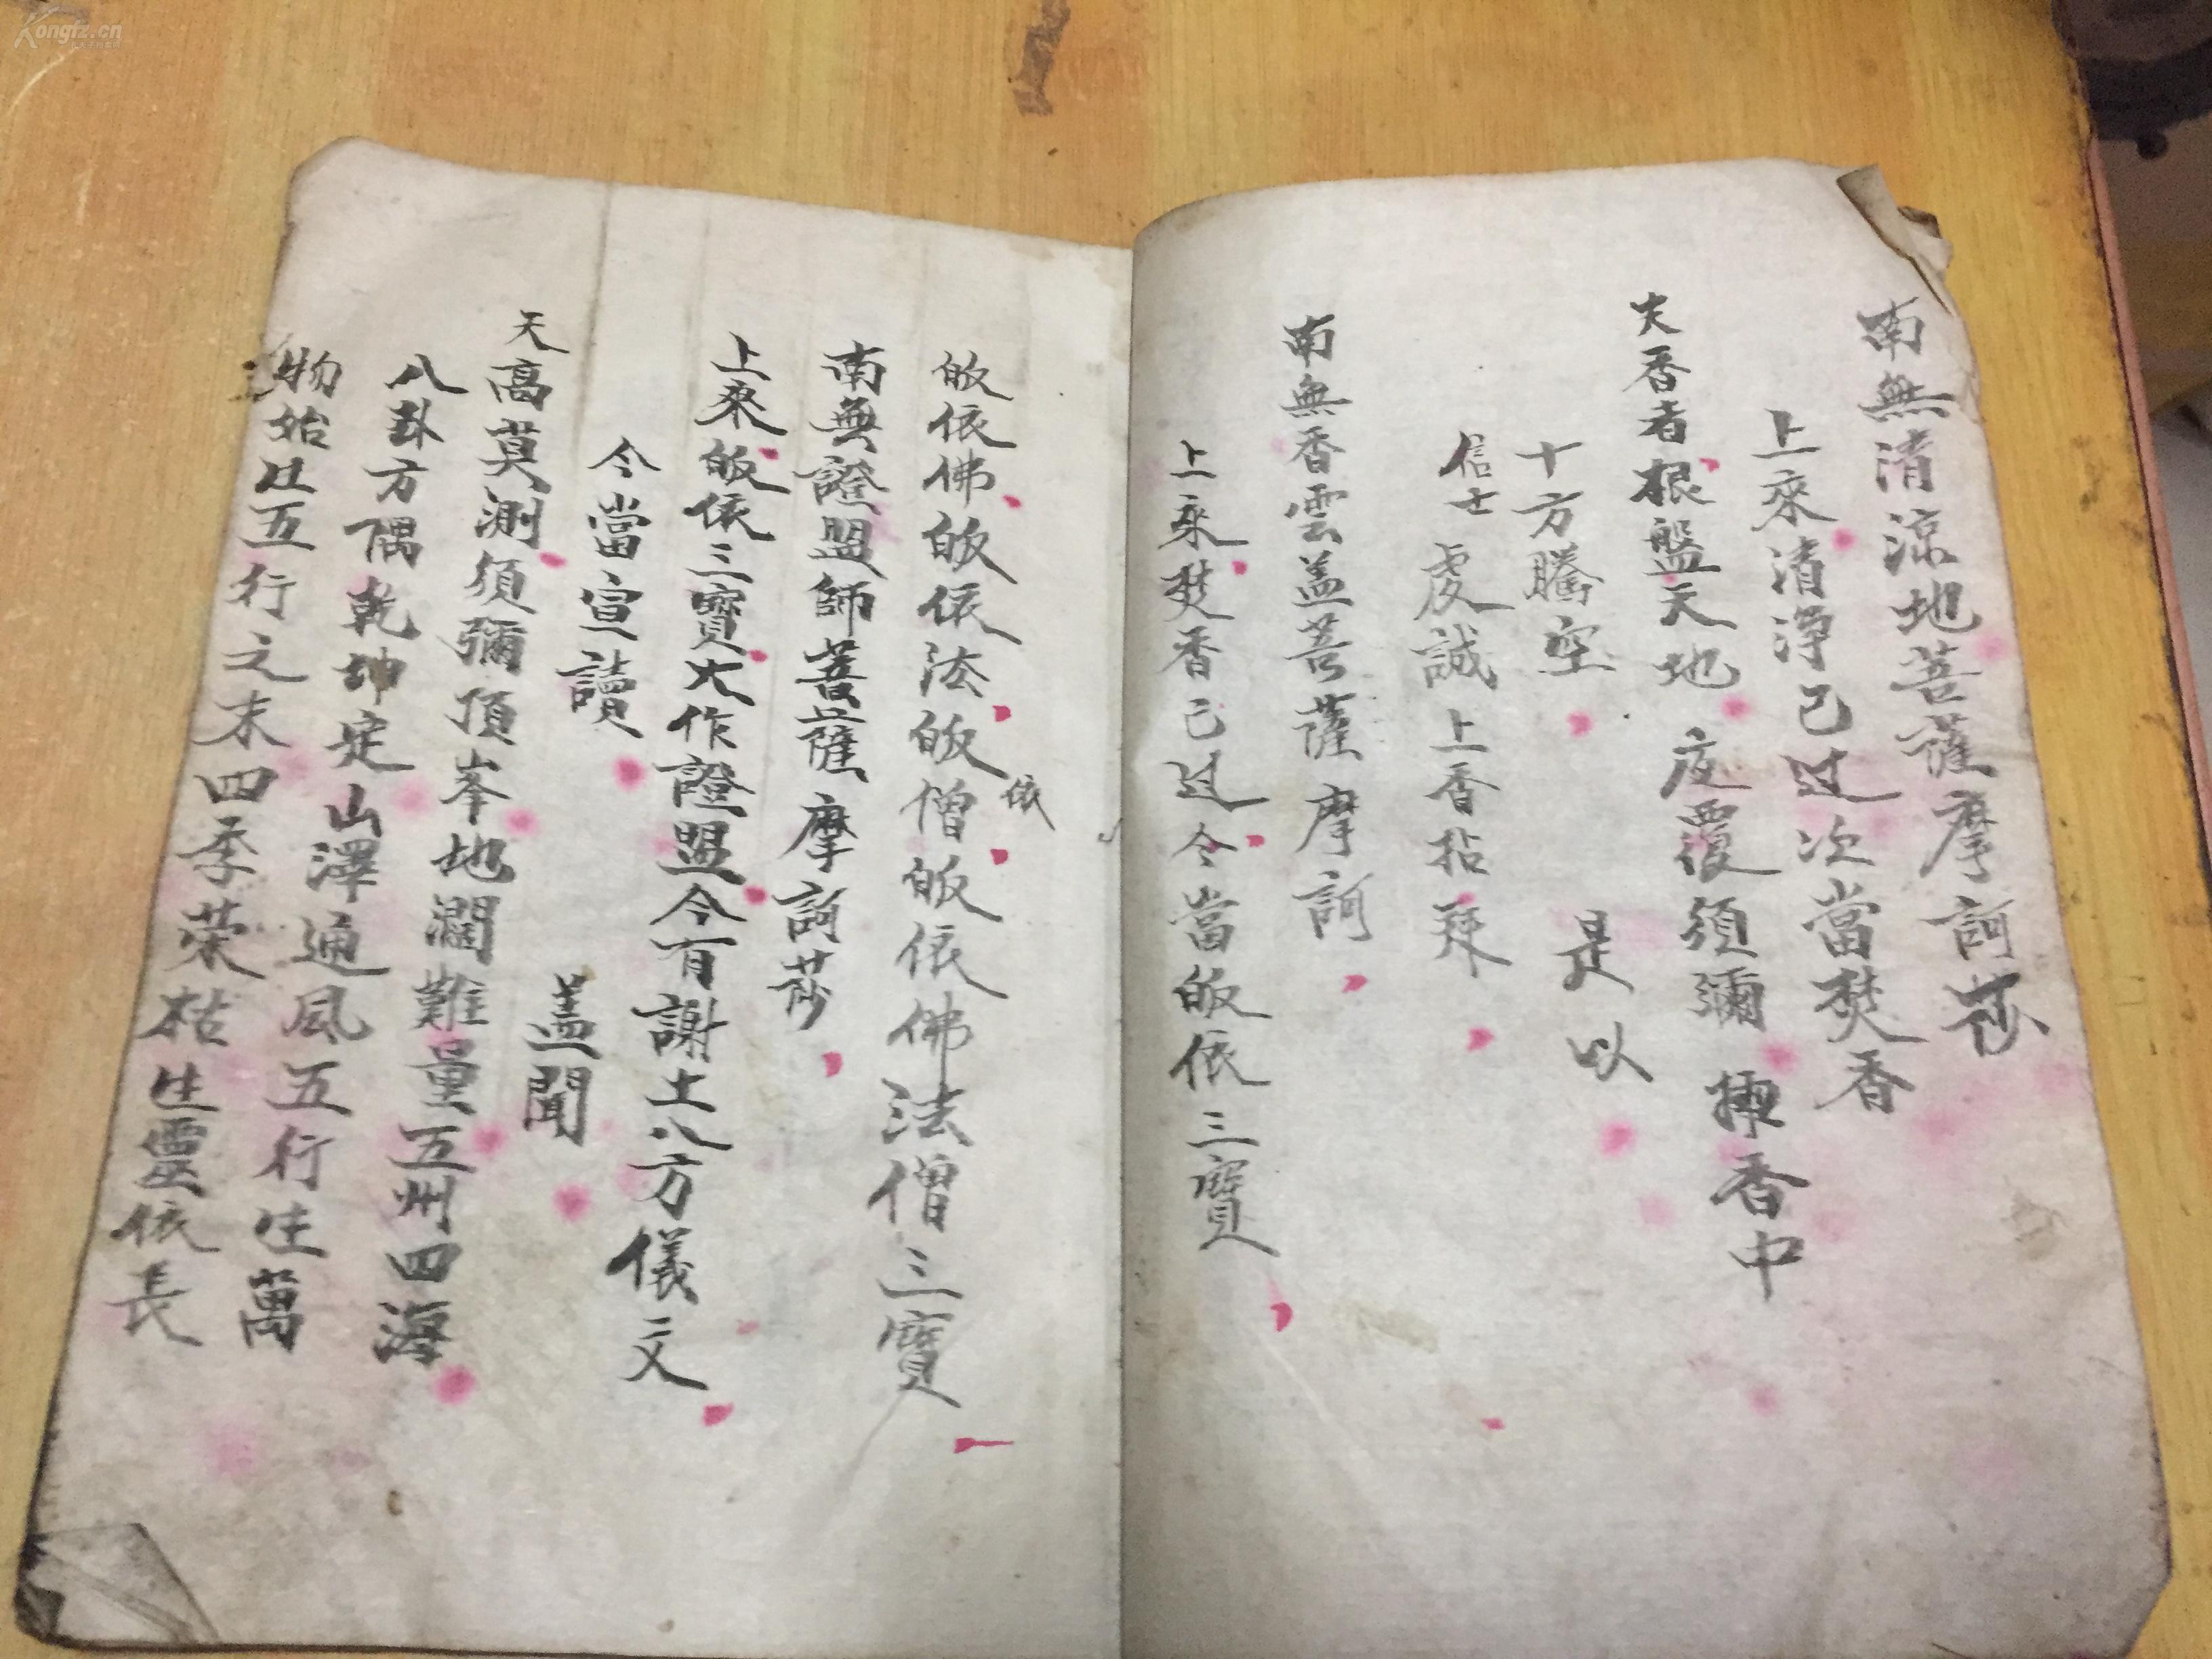 南無清涼地菩薩摩訶莎
上來清淨已过次當焚香
夫香者根盤天地 度覆須彌 攑香中
十方騰空 是以
信士 虔誠上香拈拜
南無香雲盖菩薩摩訶
上來焚香已过今當皈依三寶
皈依佛皈依法皈依僧皈依佛法僧三寶
南無證盟師菩薩摩訶莎
上來皈依三寶大作證盟今有謝土八方儀文
今當宣讀 盖聞
天高莫測須彌頂峯地濶難量五州四海
八卦方隅乾坤定山澤通風五行生萬
物始生五行之末四季荣枯生靈依長
Kongfz.cn